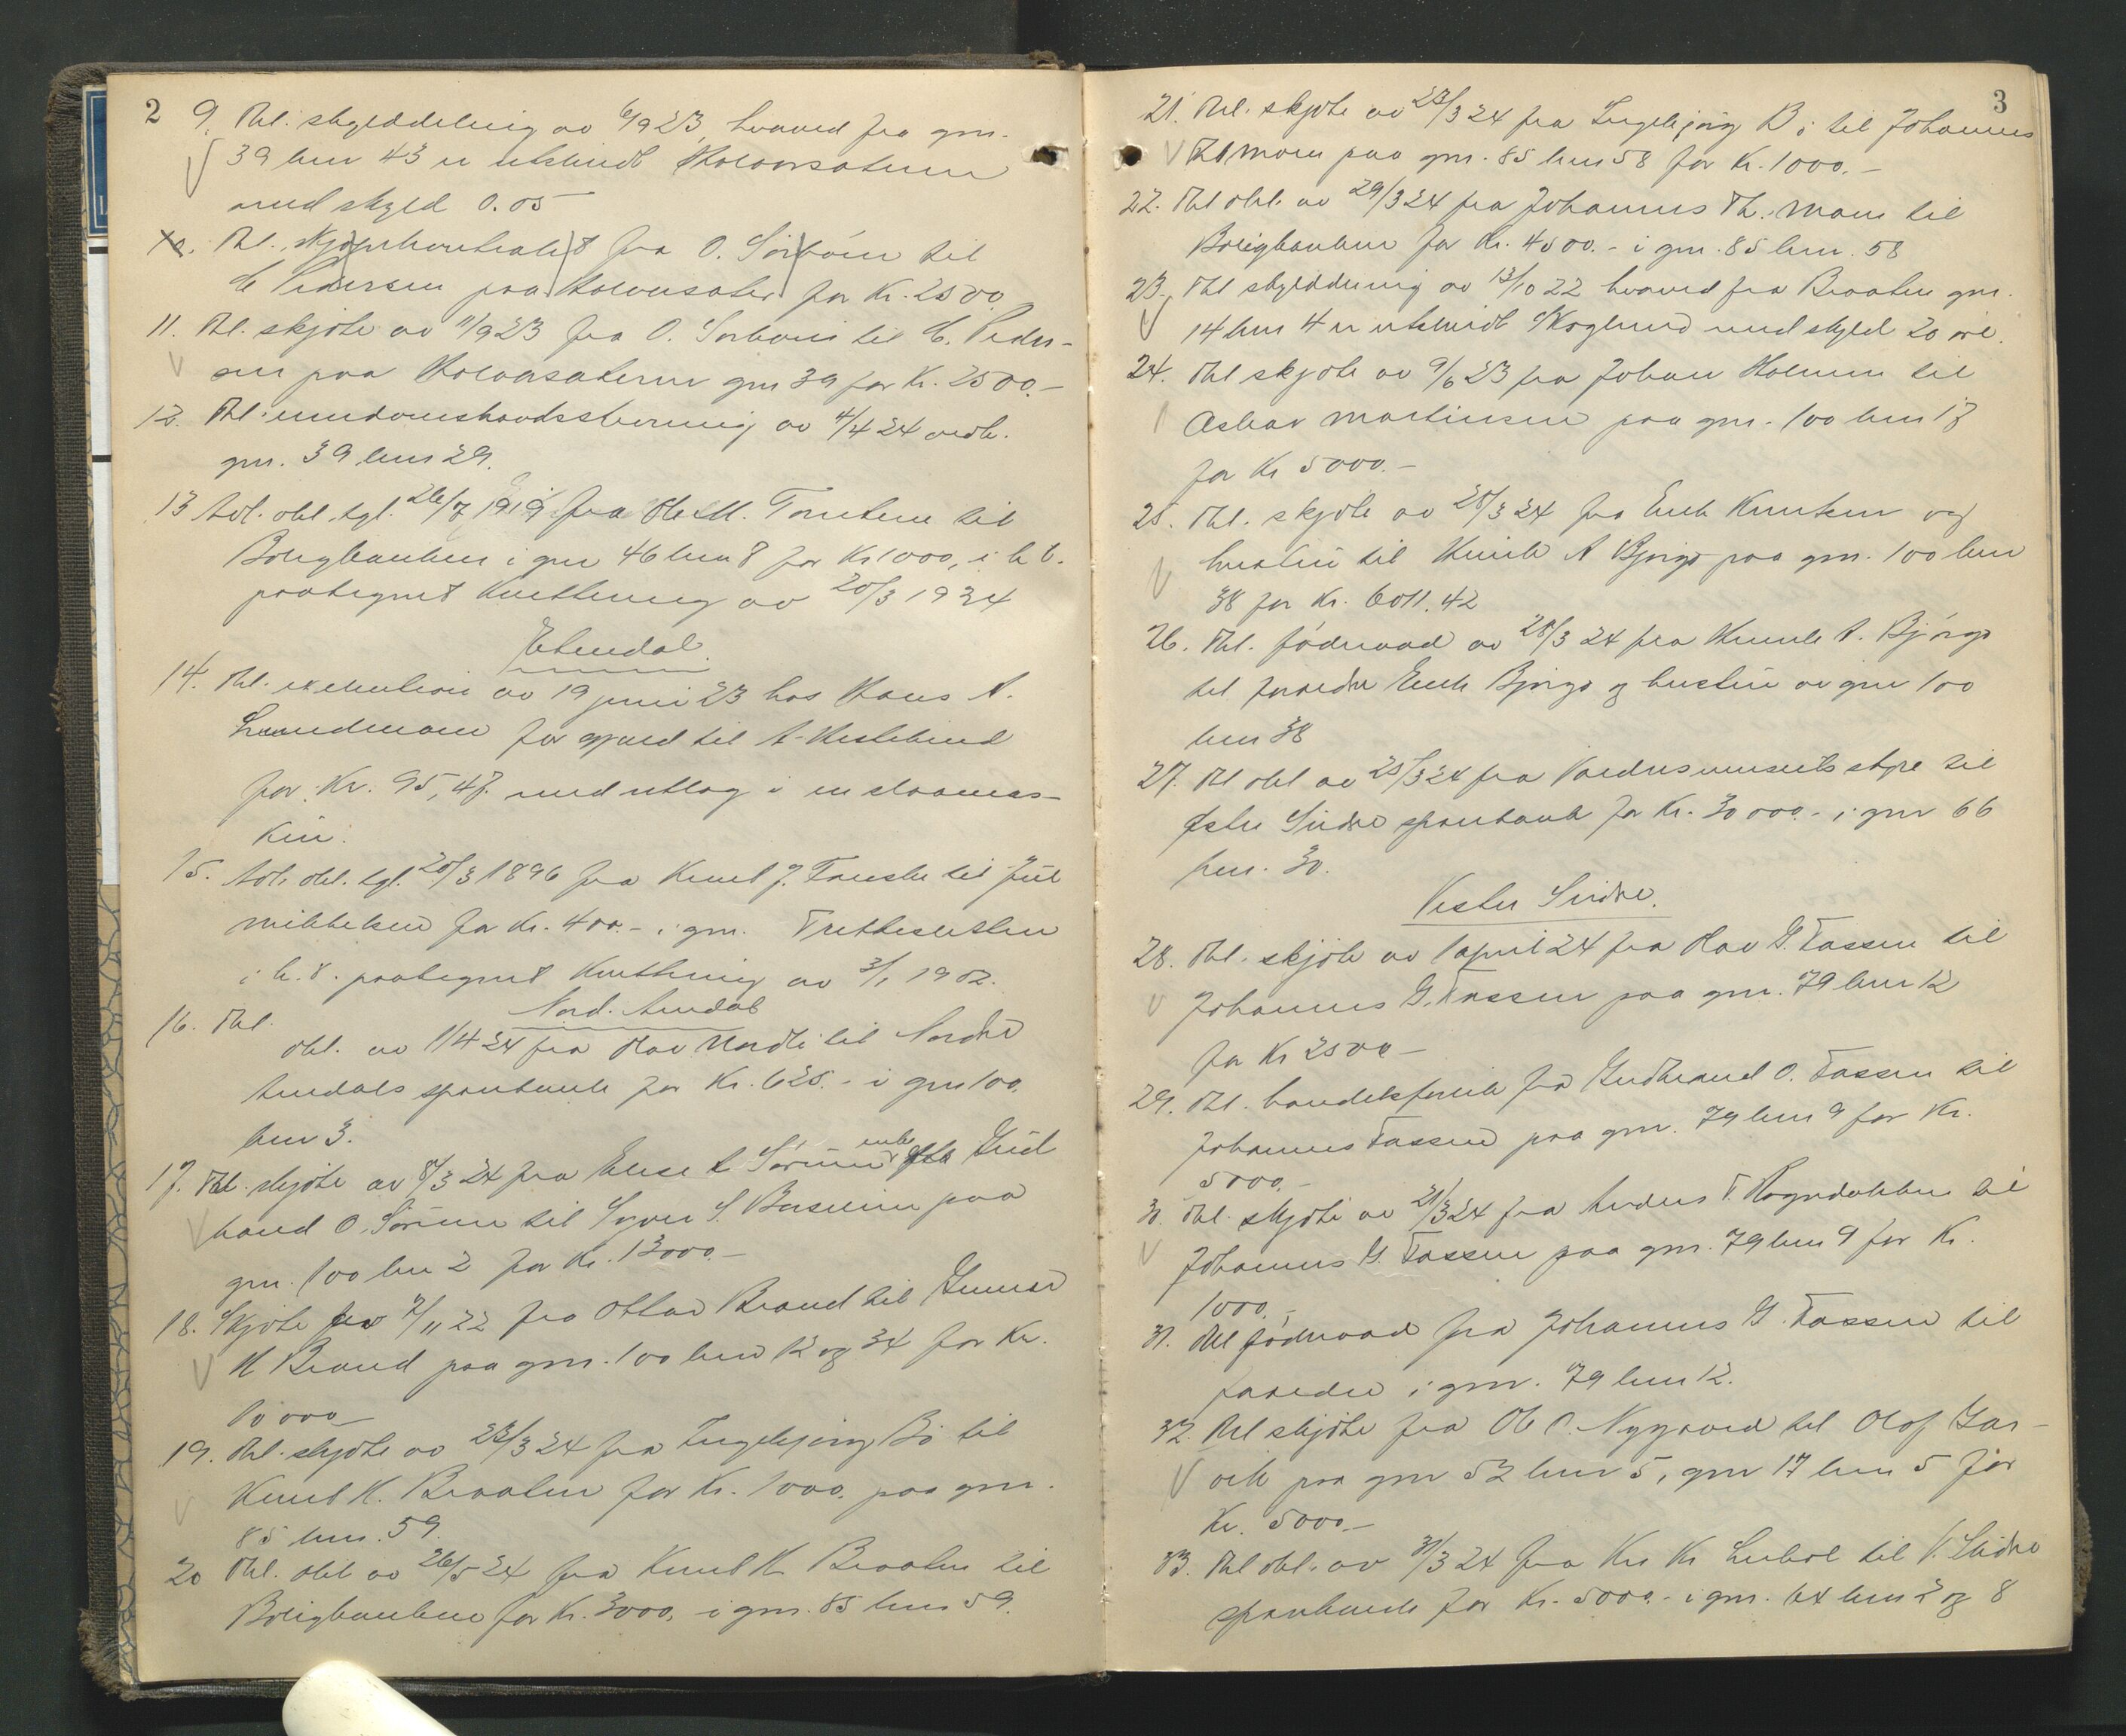 2
9. Thl. skylddeling av 6/9 23, hvaved fra gnr.
39 bnr 43 er utskindt
med skyld 0.05
10. Thl. Kjøpekontrakt fra O. Sørbøen til
Pedersen paa for Kr. 2500
11. Thl. skjøte av 11/9 23 fra O. Sørbøen til C. Peder-
sen paa gnr 39 for Kr. 2500.-
12. Thl. av 4/4 24 vedk.
gnr. 39 bnr 29.
13 Avl. obl. tgl. 26/7 1919 fra til
Boligbanken i gnr 46 bnr 8 for Kr 1000, i h. t.
paategnet Kvittering av 20/3 1924
Etnedal.
14. Thl. execution av 19 juni 23 hos Hans A.
for gjæld til A.
for Kr. 95,47. med utlæg i en slaamas-
kin.
15. Avl. obl. tgl. 20/3 1896 fra Knut J. til Juul
Mikkelsen for Kr. 400.- i gnr.
i h. t. paategnet Kvittering av 3/1 1902.
Nord. Aurdal
16. Thl.
obl. av 1/4 24 fra Olav til Nordre
Aurdals sparebank for Kr. 625.- i gnr 100.
bnr 3.
17. Thl. skjøte av 8/3 24 fra enke Gud
brand O. til paa
gnr. 100 bnr 2 for Kr. 13000.-
18. Skjøte av 7/11 22 fra Ottar Brand til Gunnar
Brand paa gnr. 100 bnr 12 og 34 for Kr.
10 000
19. Thl. skjøte av 28/3 24 fra Ingebjørg Bø til
Knut K. Braaten for Kr. 1000. paa gnr.
85 bnr. 59.
20 Thl. obl av 26/5 24 fra Knut K Braaten til
Boligbanken for Kr. 3000. i gnr. 85 bnr 59.
3
21. Thl. skjøte av 28/3 24 fra Ingebjørg Bø til Johannes
Th Moen paa gnr. 85 bnr 58 for Kr. 1000.-
22. Thl obl. av 29/3 24 fra Johannes Th. Moen til
Boligbanken for Kr. 4500.- i gnr. 85 bnr. 58
23. Thl skylddeling av 13/10 22 hvaved fra Braaten gnr.
14 bnr 4 er utskindt Skoglund med skyld 20 øre.
24. Thl skjøte av 9/6 23 fra Johan Holmen til
Martinsen paa gnr. 100 bnr 17
for Kr 5000.-
25. Thl. skjøte av 28/3 24 fra Erik Knutsen og
hustru til A Bjørgo paa gnr. 100 bnr
38 for Kr. 6011.42
26. Thl. føderaad av 28/3 24 fra A. Bjørgo
til forældre Erik Bjørgo og hustru av gnr 100
bnr 38
27. Thl obl av 25/3 24 fra Valdresmuseets styre til
Østre Slidre sparebank for Kr. 30 000.- i gnr 66
bnr. 30.
Vestre Slidre.
28. Thl. skjøte av 1 april 24 fra Olav G. Fossen til
Johannes G. Fossen paa gnr. 79 bnr 12
for Kr 2500.-
29. Thl. fra Gudbrand O. Fossen til
Johannes Fossen paa gnr. 79 bnr 9 for Kr.
5000.-
30. Thl. skjøte av 21/3 24 fra Anders T. til
Johannes G. Fossen paa gnr. 79 bnr 9 for Kr.
1000.-
31. Thl føderaad fra Johannes G. Fossen til
forældre i gnr. 79 bnr 12.
32. Thl skjøte fra Ole O. Nygaard til Olof Gar-
vik paa gnr 52 bnr 5, gnr 17 bnr 5 for
Kr. 5000.-
33. Thl obl. av 31/3 24 fra Kr til V. Slidre
sparebank for Kr. 5000.- i gnr. 64 bnr 2 og 8